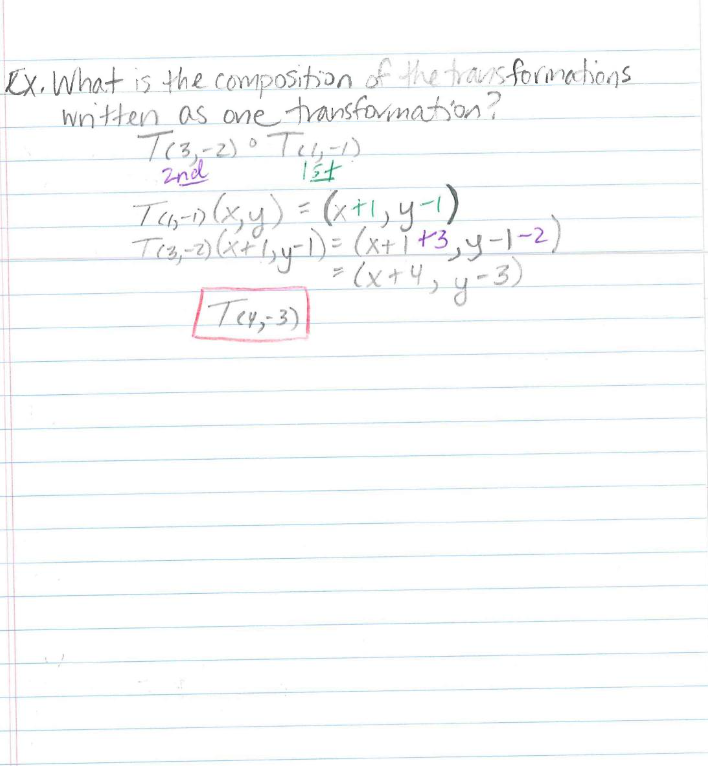 Ex. What is the composition of the transformations
written as one transformation?
T(3,-2) ∘ T(1,-1)
2nd 1st
T(1,-1)(x,y) = (x+1, y-1)
T(3,-2)(x+1,y-1) = (x+1+3, y-1-2)
= (x+4, y-3)
T(4,-3)